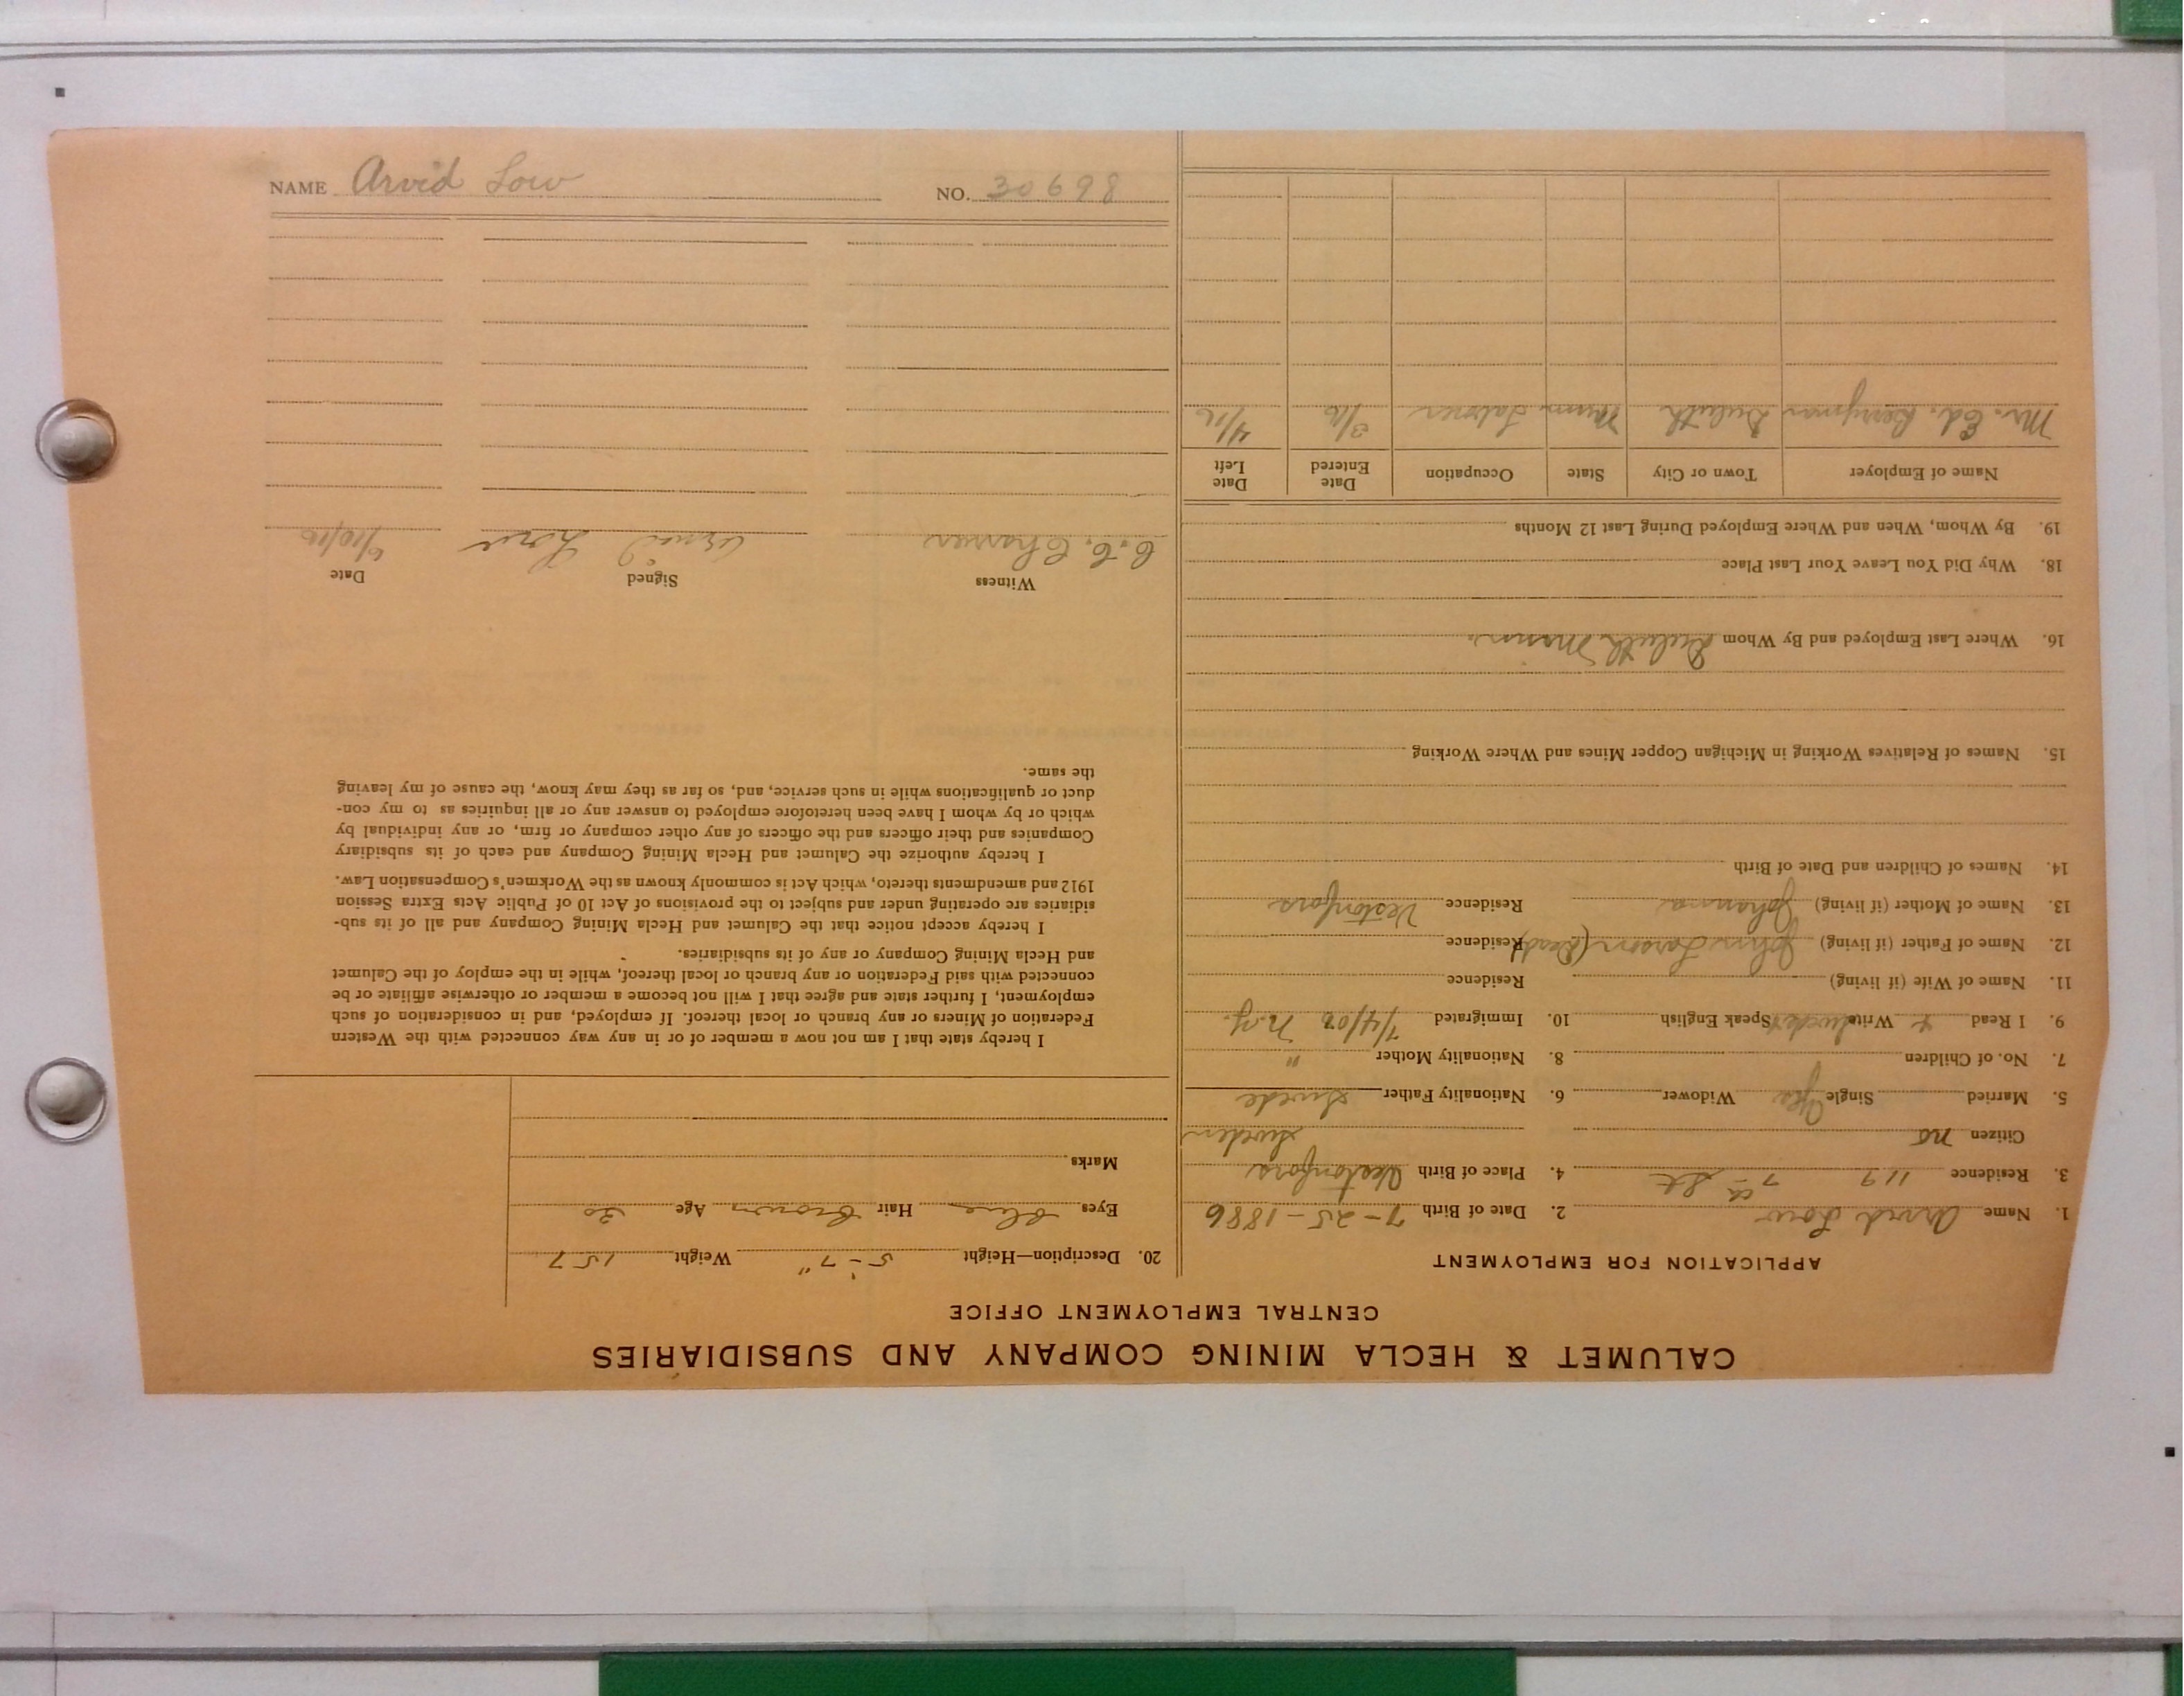 CALUMET & HECLA MINING COMPANY AND SUBSIDIARIES
CENTRAL EMPLOYMENT OFFICE
APPLICATION FOR EMPLOYMENT
1. Name Arvid Low 2. Date of Birth 7-25-1886
3. Residence 119 7th St 4. Place of Birth Vestanfors
Citizen no Sweden
5. Married Single Yes Widower 6. Nationality Father Swede
7. No. of Children 8. Nationality Mother "
9. I Read & Write Speak English 10. Immigrated N.Y.
11. Name of Wife (if living) Residence
12. Name of Father (if living) John Larson (Dead) Residence
13. Name of Mother (if living) Johanna Residence Vestanfors
14. Names of Children and Date of Birth
15. Names of Relatives Working in Michigan Copper Mines and Where Working
16. Where Last Employed and By Whom Duluth Minn.
18. Why Did You Leave Your Last Place
19. By Whom, When and Where Employed During Last 12 Months
Name of Employer Town or City State Occupation Date Entered Date Left
Mr. Ed. Berryman Duluth Minn. Laborer 3/16 4/16
20. Description—Height 5-7" Weight 157
Eyes blue Hair Brown Age 30
Marks
I hereby state that I am not now a member of or in any way connected with the Western
Federation of Miners or any branch or local thereof. If employed, and in consideration of such
employment, I further state and agree that I will not become a member or otherwise affiliate or be
connected with said Federation or any branch or local thereof, while in the employ of the Calumet
and Hecla Mining Company or any of its subsidiaries.
I hereby accept notice that the Calumet and Hecla Mining Company and all of its sub-
sidiaries are operating under and subject to the provisions of Act 10 of Public Acts Extra Session
1912 and amendments thereto, which Act is commonly known as the Workmen's Compensation Law.
I hereby authorize the Calumet and Hecla Mining Company and each of its subsidiary
Companies and their officers and the officers of any other company or firm, or any individual by
which or by whom I have been heretofore employed to answer any or all inquiries as to my con-
duct or qualifications while in such service, and, so far as they may know, the cause of my leaving
the same.
Witness Signed Date
C. C. Arvid Low 6/10/16
NAME Arvid Low NO. 30698